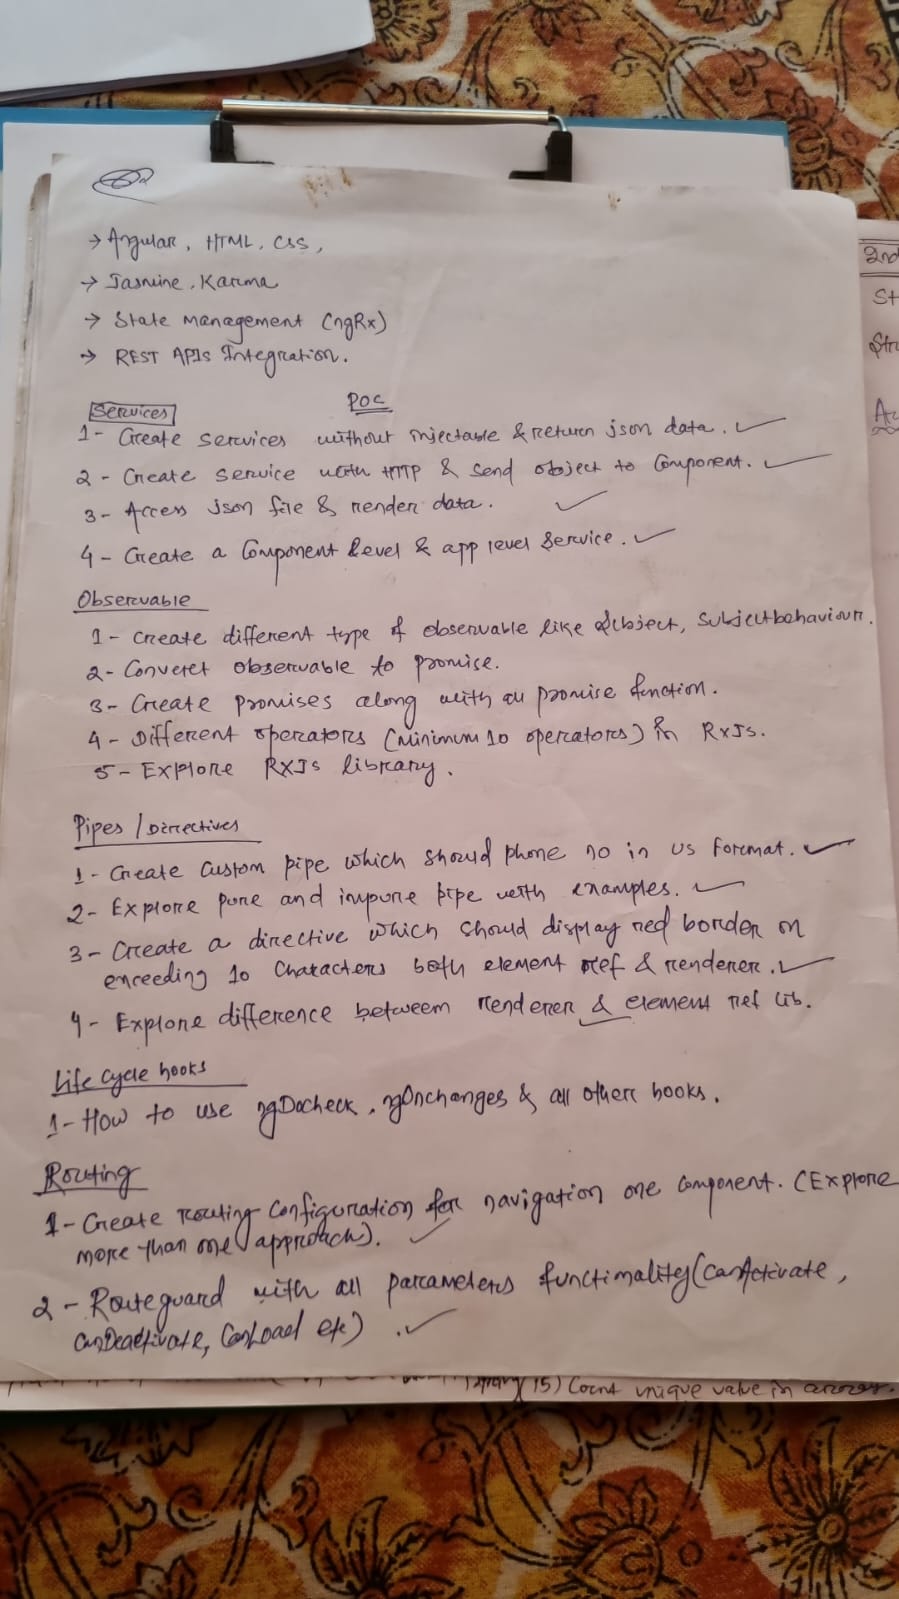 → Angular, HTML, CSS,
→ Jasmine, Karma
→ State Management (ngRx)
→ REST APIs Integration.
POC
Services
1- Create services without injectable & return json data.
2- Create service with HTTP & send object to Component.
3- Access json file & render data.
4- Create a Component level & app level service.
Observable
1- Create different type of observable like subject, subjectbehaviour.
2- Convert observable to promise.
3- Create promises along with all promise function.
4- Different operators (minimum 10 operators) in RxJs.
5- Explore RXJs library.
Pipes / Directives
1- Create Custom pipe which should phone no in US format.
2- Explore pure and impure pipe with examples.
3- Create a directive which should display red border on
exceeding 10 Characters both element ref & renderer.
4- Explore difference between renderer & element ref lib.
Life Cycle hooks
1- How to use ngDocheck, ngOnchanges & all other hooks.
Routing
1- Create routing configuration for navigation one component. (Explore
more than one approach).
2- Routeguard with all parameters functionality (canActivate,
canDeactivate, CanLoad etc).
15) Count unique value in array.
2nd
St